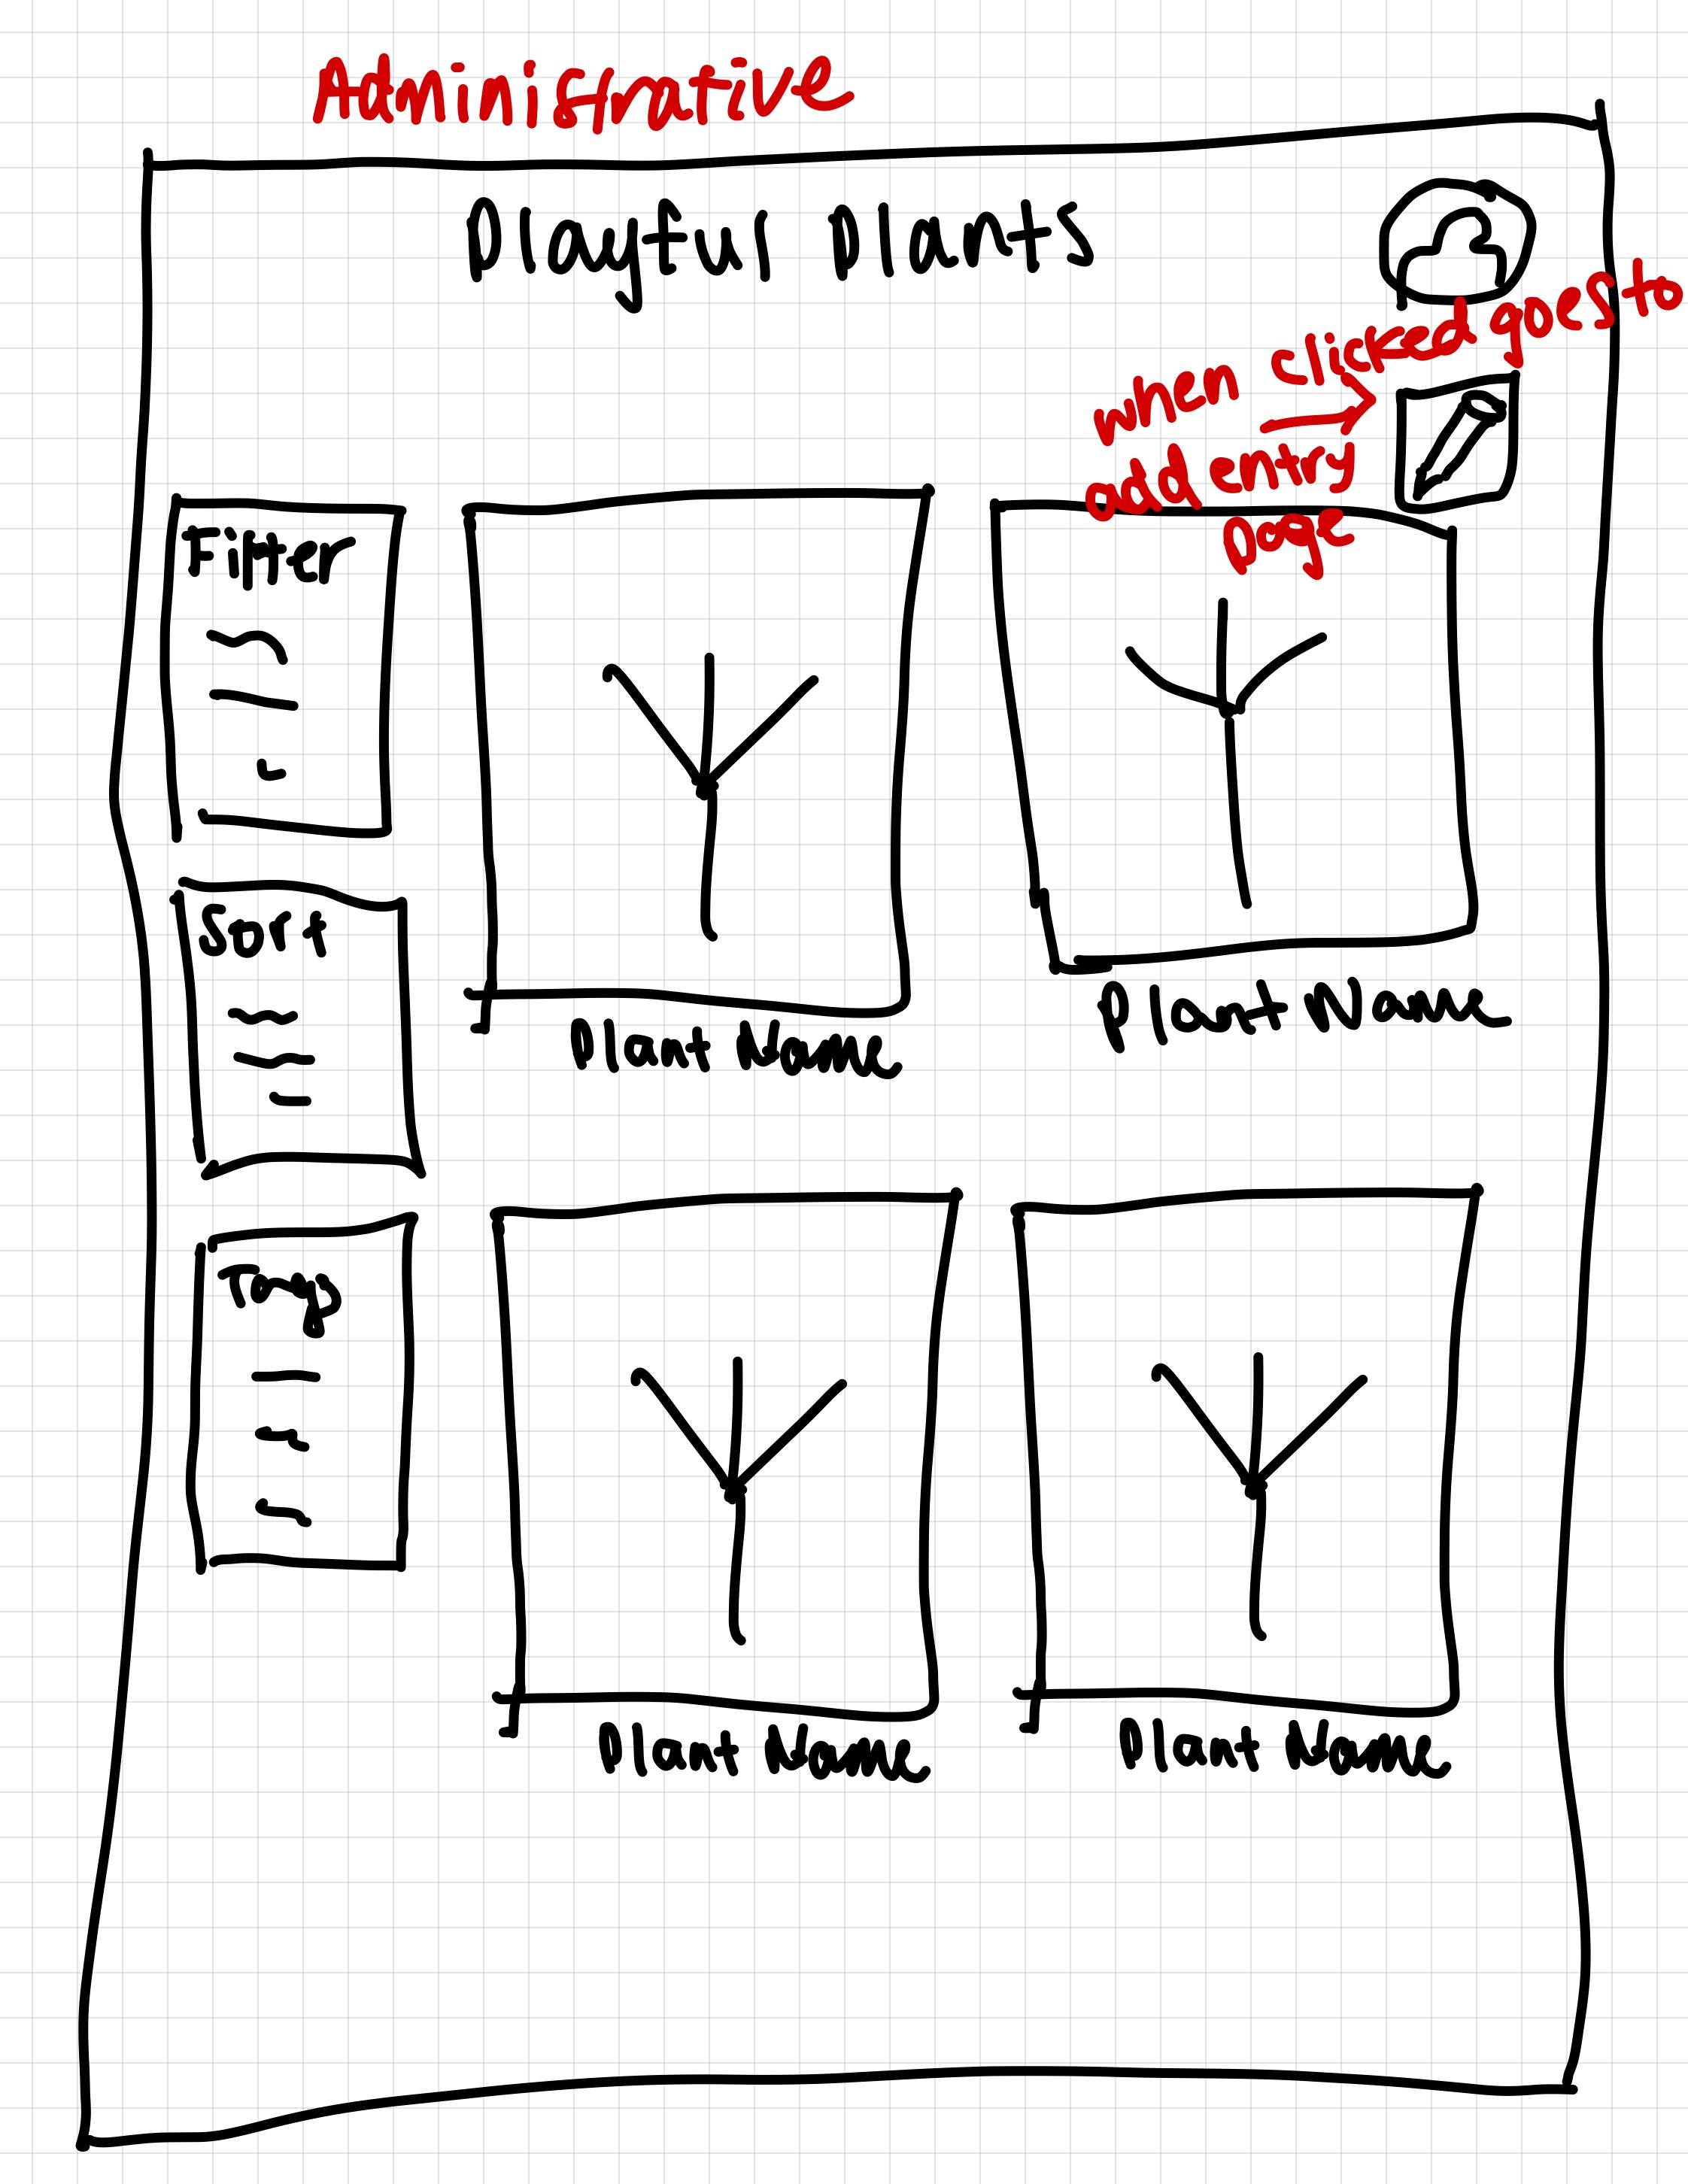 Administrative
Playful Plants
when clicked goes to
add entry
page
Filter
Plant Name
Plant Name
Sort
Tags
Plant Name
Plant Name